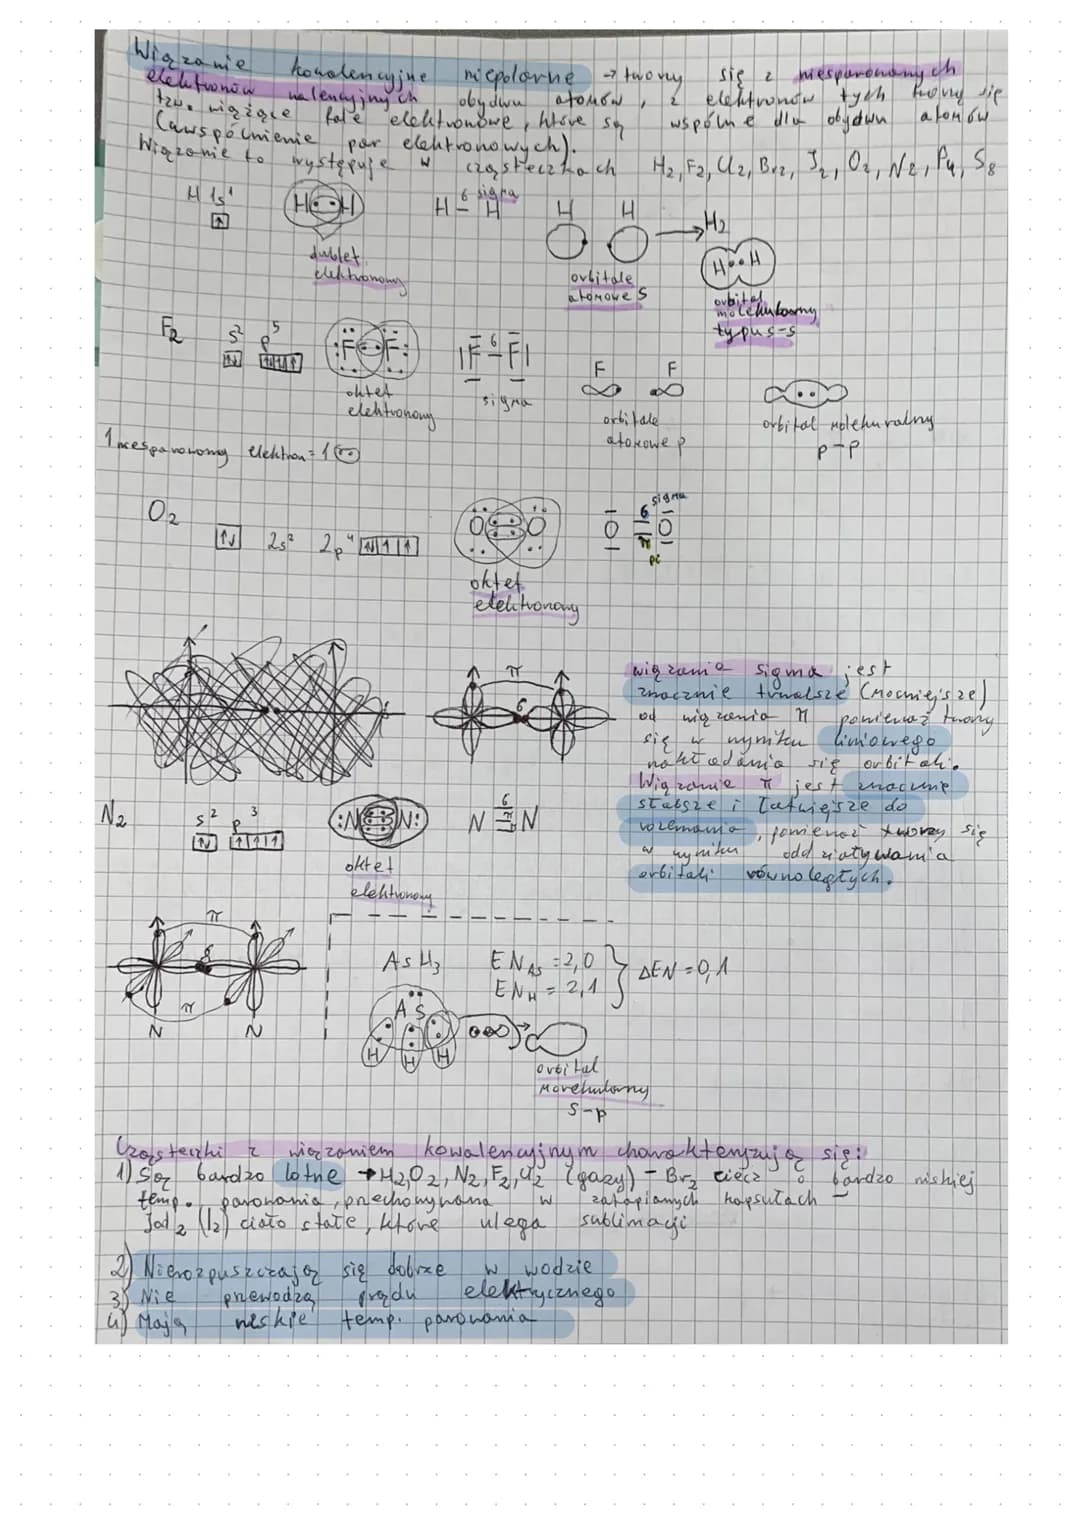 Wiązanie kowalencyjne niepolarne → tworzy się z niesparowanych
elektronów walencyjnych obydwu atomów, z elektronów tych tworzą się
tzw. wiążące pary elektronowe, które są wspólne dla obydwu atomów
(uwspólnienie par elektronowych).
Wiązanie to występuje w cząsteczkach H2, F2, Cl2, Br2, I2, O2, N2, P4, S8
H 1s¹
↑
H H
dublet
elektronowy
H - H
σ sigma
H H → H2
orbitale
atomowe s
H H
orbital
molekularny
typu s-s
F2 s² p⁵
↑↓ ↑↓ ↑↓ ↑
F F
oktet
elektronowy
F σ F
sigma
F F
orbitale
atomowe p
orbital molekuralny
p-p
1 niesparowany elektron = 1
O2 ↑↓ 2s² 2p⁴ ↑↓ ↑ ↑
O O
oktet
elektronowy
O = O
σ sigma
π pi
π
σ
wiązania sigma jest
znacznie trwalsze (mocniejsze)
od wiązania π ponieważ tworzy
się w wyniku liniowego
nakładania się orbitali.
Wiązanie π jest znacznie
słabsze i łatwiejsze do
rozerwania, ponieważ tworzy się
w wyniku oddziaływania
orbitali równoległych.
N2 s² p³
↑↓ ↑ ↑ ↑
:N N:
oktet
elektronowy
N ≡ N
σ
π
π
σ
π
N N
AsH3 EN As = 2,0
EN H = 2,1
ΔEN = 0,1
As
H H H
orbital
molekularny
s-p
Cząsteczki z wiązaniem kowalencyjnym charakteryzują się:
1) Są bardzo lotne → H2, O2, N2, F2, Cl2 (gazy) - Br2 ciecz o bardzo niskiej
temp. parowania, przechowywana w zatapianych kapsułach -
Jod2 (I2) ciało stałe, które ulega sublimacji
2) Nierozpuszczają się dobrze w wodzie
3) Nie przewodzą prądu elektrycznego
4) Mają niskie temp. parowania